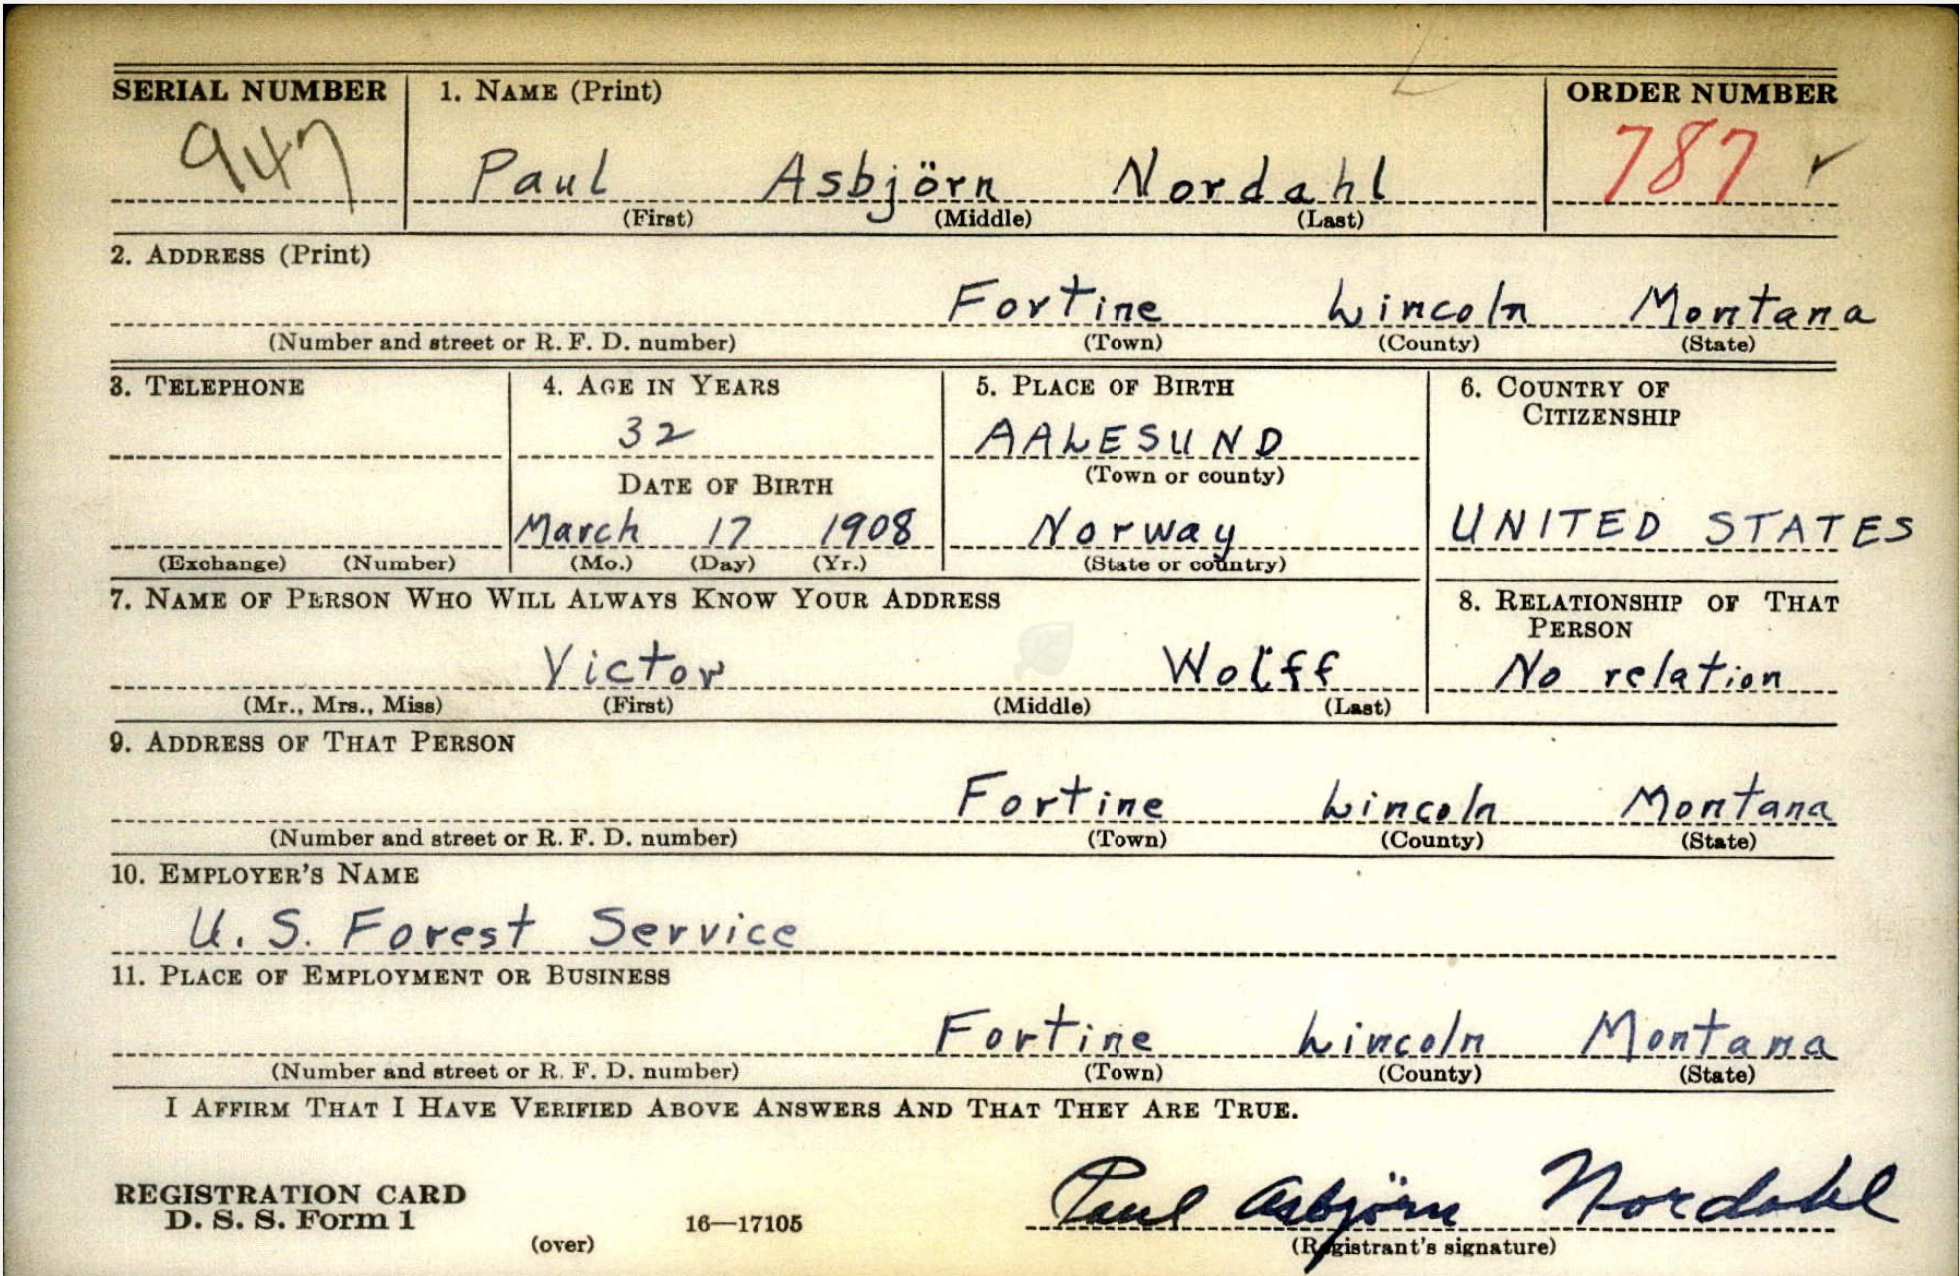 SERIAL NUMBER 1. NAME (Print) ORDER NUMBER
947 Paul Asbjörn Nordahl 787
(First) (Middle) (Last)
2. ADDRESS (Print)
Fortine Lincoln Montana
(Number and street or R. F. D. number) (Town) (County) (State)
3. TELEPHONE 4. AGE IN YEARS 5. PLACE OF BIRTH 6. COUNTRY OF
CITIZENSHIP
32 AALESUND
(Town or county)
DATE OF BIRTH
March 17 1908 Norway UNITED STATES
(Exchange) (Number) (Mo.) (Day) (Yr.) (State or country)
7. NAME OF PERSON WHO WILL ALWAYS KNOW YOUR ADDRESS 8. RELATIONSHIP OF THAT
PERSON
Victor Wolff No relation
(Mr., Mrs., Miss) (First) (Middle) (Last)
9. ADDRESS OF THAT PERSON
Fortine Lincoln Montana
(Number and street or R. F. D. number) (Town) (County) (State)
10. EMPLOYER'S NAME
U.S. Forest Service
11. PLACE OF EMPLOYMENT OR BUSINESS
Fortine Lincoln Montana
(Number and street or R. F. D. number) (Town) (County) (State)
I AFFIRM THAT I HAVE VERIFIED ABOVE ANSWERS AND THAT THEY ARE TRUE.
REGISTRATION CARD
D. S. S. Form 1 16—17105 Paul Asbjörn Nordahl
(over) (Registrant's signature)